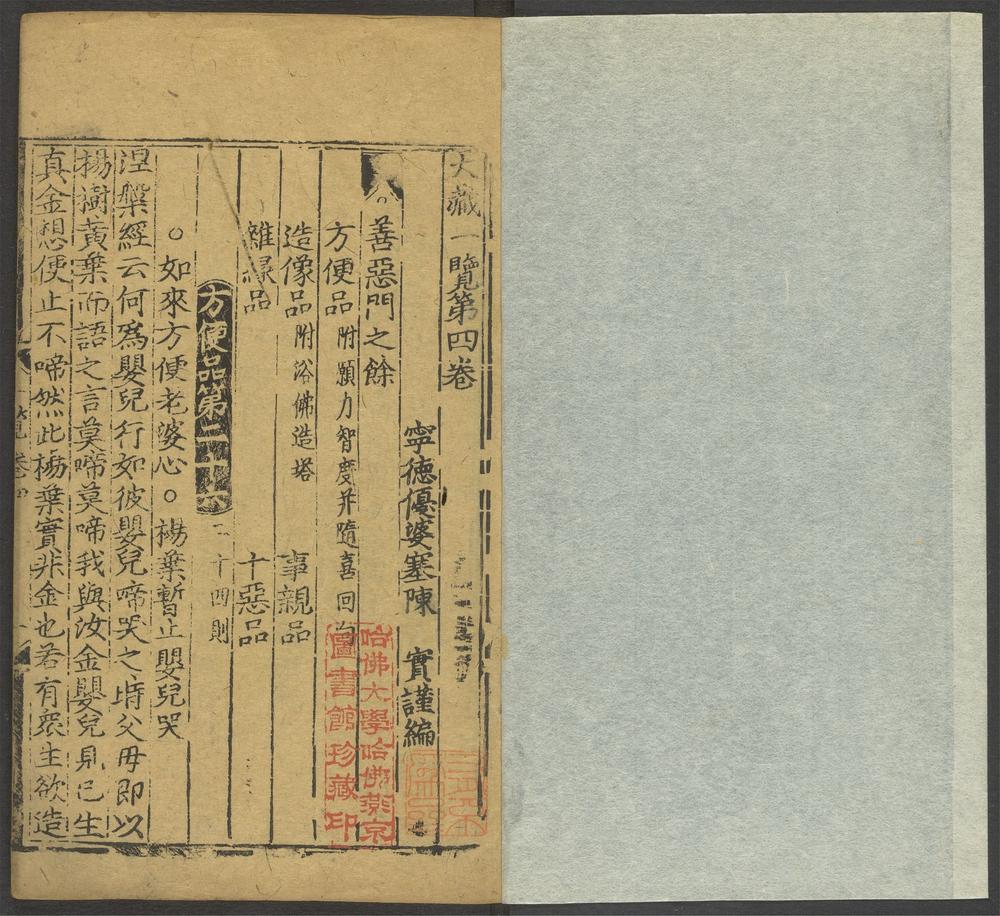 大藏一覽第四卷
寧德優婆塞陳 實謹編
善惡門之餘
方便品 附願力智度并隨喜回向
造像品 附浴佛造塔 事親品
雜緣品 十惡品
方便品第二十六 二十四則
○如來方便老婆心○楊葉暫止嬰兒哭
涅槃經云何爲嬰兒行如彼嬰兒啼哭之時父母即以
楊樹黃葉而語之言莫啼莫啼我與汝金嬰兒見已生
真金想便止不啼然此楊葉實非金也若有衆生欲造
哈佛大學哈佛燕京
圖書館珍藏印